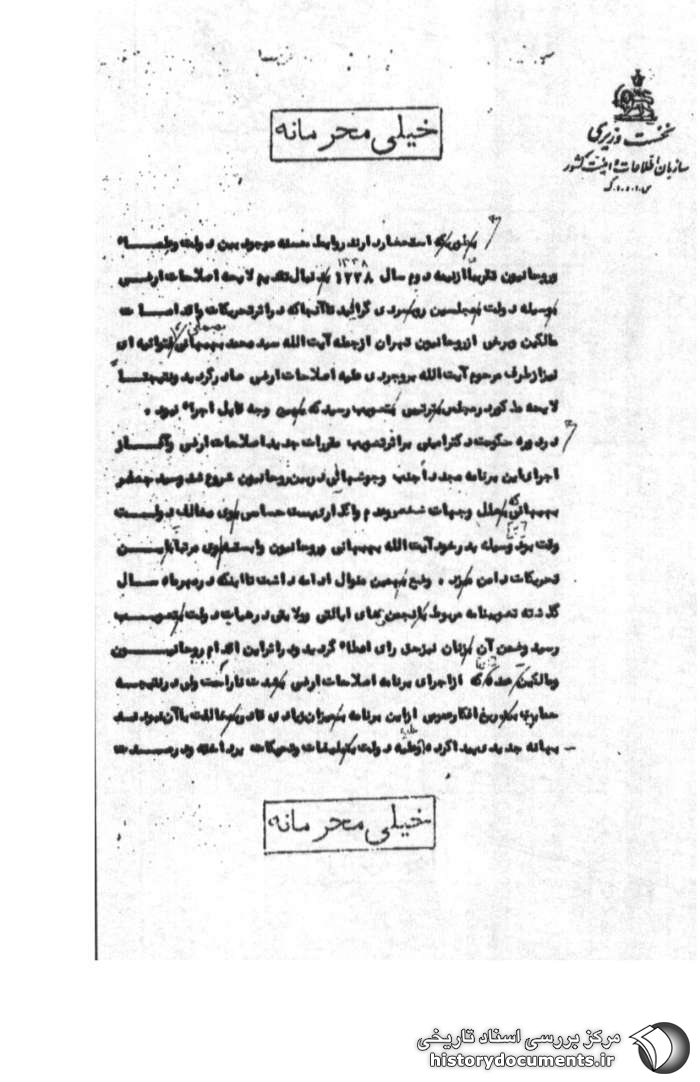 خیلی محرمانه
نخست وزیری
سازمان اطلاعات و امنیت کشور
س.ا.و.ا.ک
بطوریکه استحضار دارند روابط حسنه موجود بین دولت و علماء
و روحانیون تقریباً از نیمه دوم سال ۱۳۳۸ بدنبال تقدیم لایحه اصلاحات ارضی
۱۳۳۸
بوسیله دولت بمجلسین رو بسردی گرائید تا آنجا که در اثر تحریکات و اقدامات
مالکین و برخی از روحانیون تهران از جمله آیت الله سید محمد بهبهانی فتوائیه ای
نیز از طرف مرحوم آیت الله بروجردی علیه اصلاحات ارضی صادر گردید و نتیجتاً
لایحه مذکور در مجلس بترتیبی بتصویب رسید که بهیچ وجه قابل اجراء نبود .
در دوره حکومت دکتر امینی بر اثر تصویب مقررات جدید اصلاحات ارضی و آغاز
اجرای این برنامه مجدداً جنب و جوشهائی در بین روحانیون شروع شد و سید جعفر
بهبهانی که بعلل وجهات شخصی و عدم واگذاری پست حساس بوی مخالف دولت
وقت بود وسیله پدر خود آیت الله بهبهانی و روحانیون وابسته بوی مرتباً باین
تحریکات دامن میزد . وضع بهمین منوال ادامه داشت تا اینکه در مهرماه سال
گذشته تصویبنامه مربوط بانجمن های ایالتی و ولایتی در هیات دولت بتصویب
رسید و ضمن آن بزنان نیز حق رای اعطاء گردید و در اثر این اقدام روحانیون
و مالکین عمده که از اجرای برنامه اصلاحات ارضی بشدت ناراحت ولی در نتیجه
افکار عمومی از این برنامه بمیزان زیادی قادر بمخالفت با آن نبودند
بهانه جدیدی پیدا کرده و علیه دولت بتبلیغات و تحریکات پرداخته و درصدد
خیلی محرمانه
مرکز بررسی اسناد تاریخی
historydocuments.ir